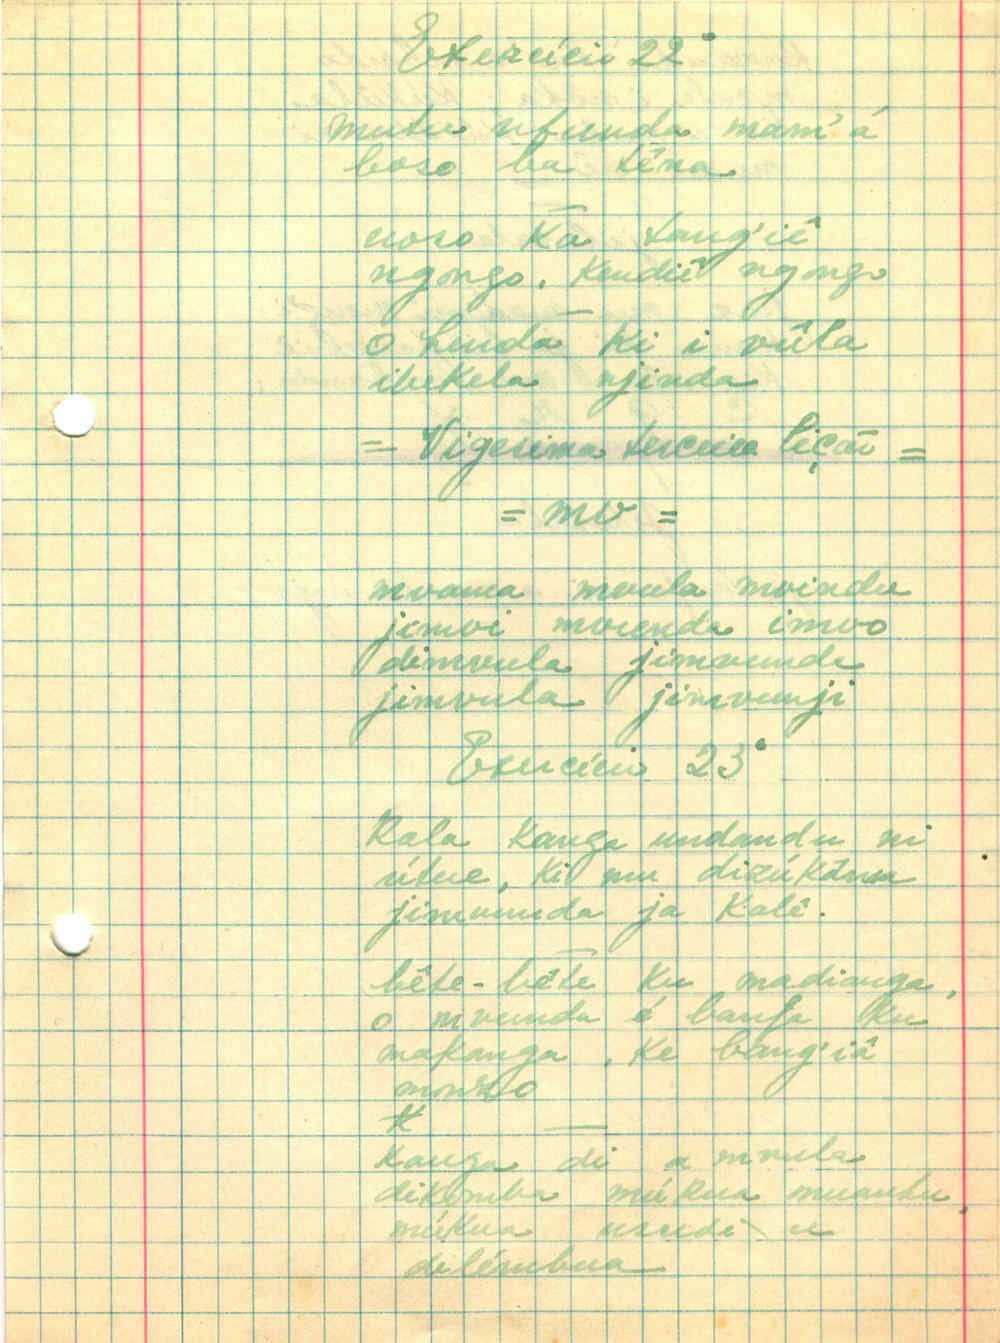 Exercício 22º
mutu ufunda mam'á
boso ba têna
uoso ka tang'iê
ngongo, kudiê ngongo
O henda ki i vûla
ibekela njinda
= Vigesima terceira liçaõ =
= mv =
mvama mvula mvindu
jimvi mvunda imvo
dimvula jimvunda
jimvula jimvunji
Exercício 23º
Kala kanga undandu ni
útue, ki mu dizúkama
jimvunda ja kalê.
bête-bête ku madianga,
o mvunda é banga ku
makanga, ke bang'iâ
monzo
Kanga di a mvula
dikomba múkua muantu,
múkua usudi u
dilémbua